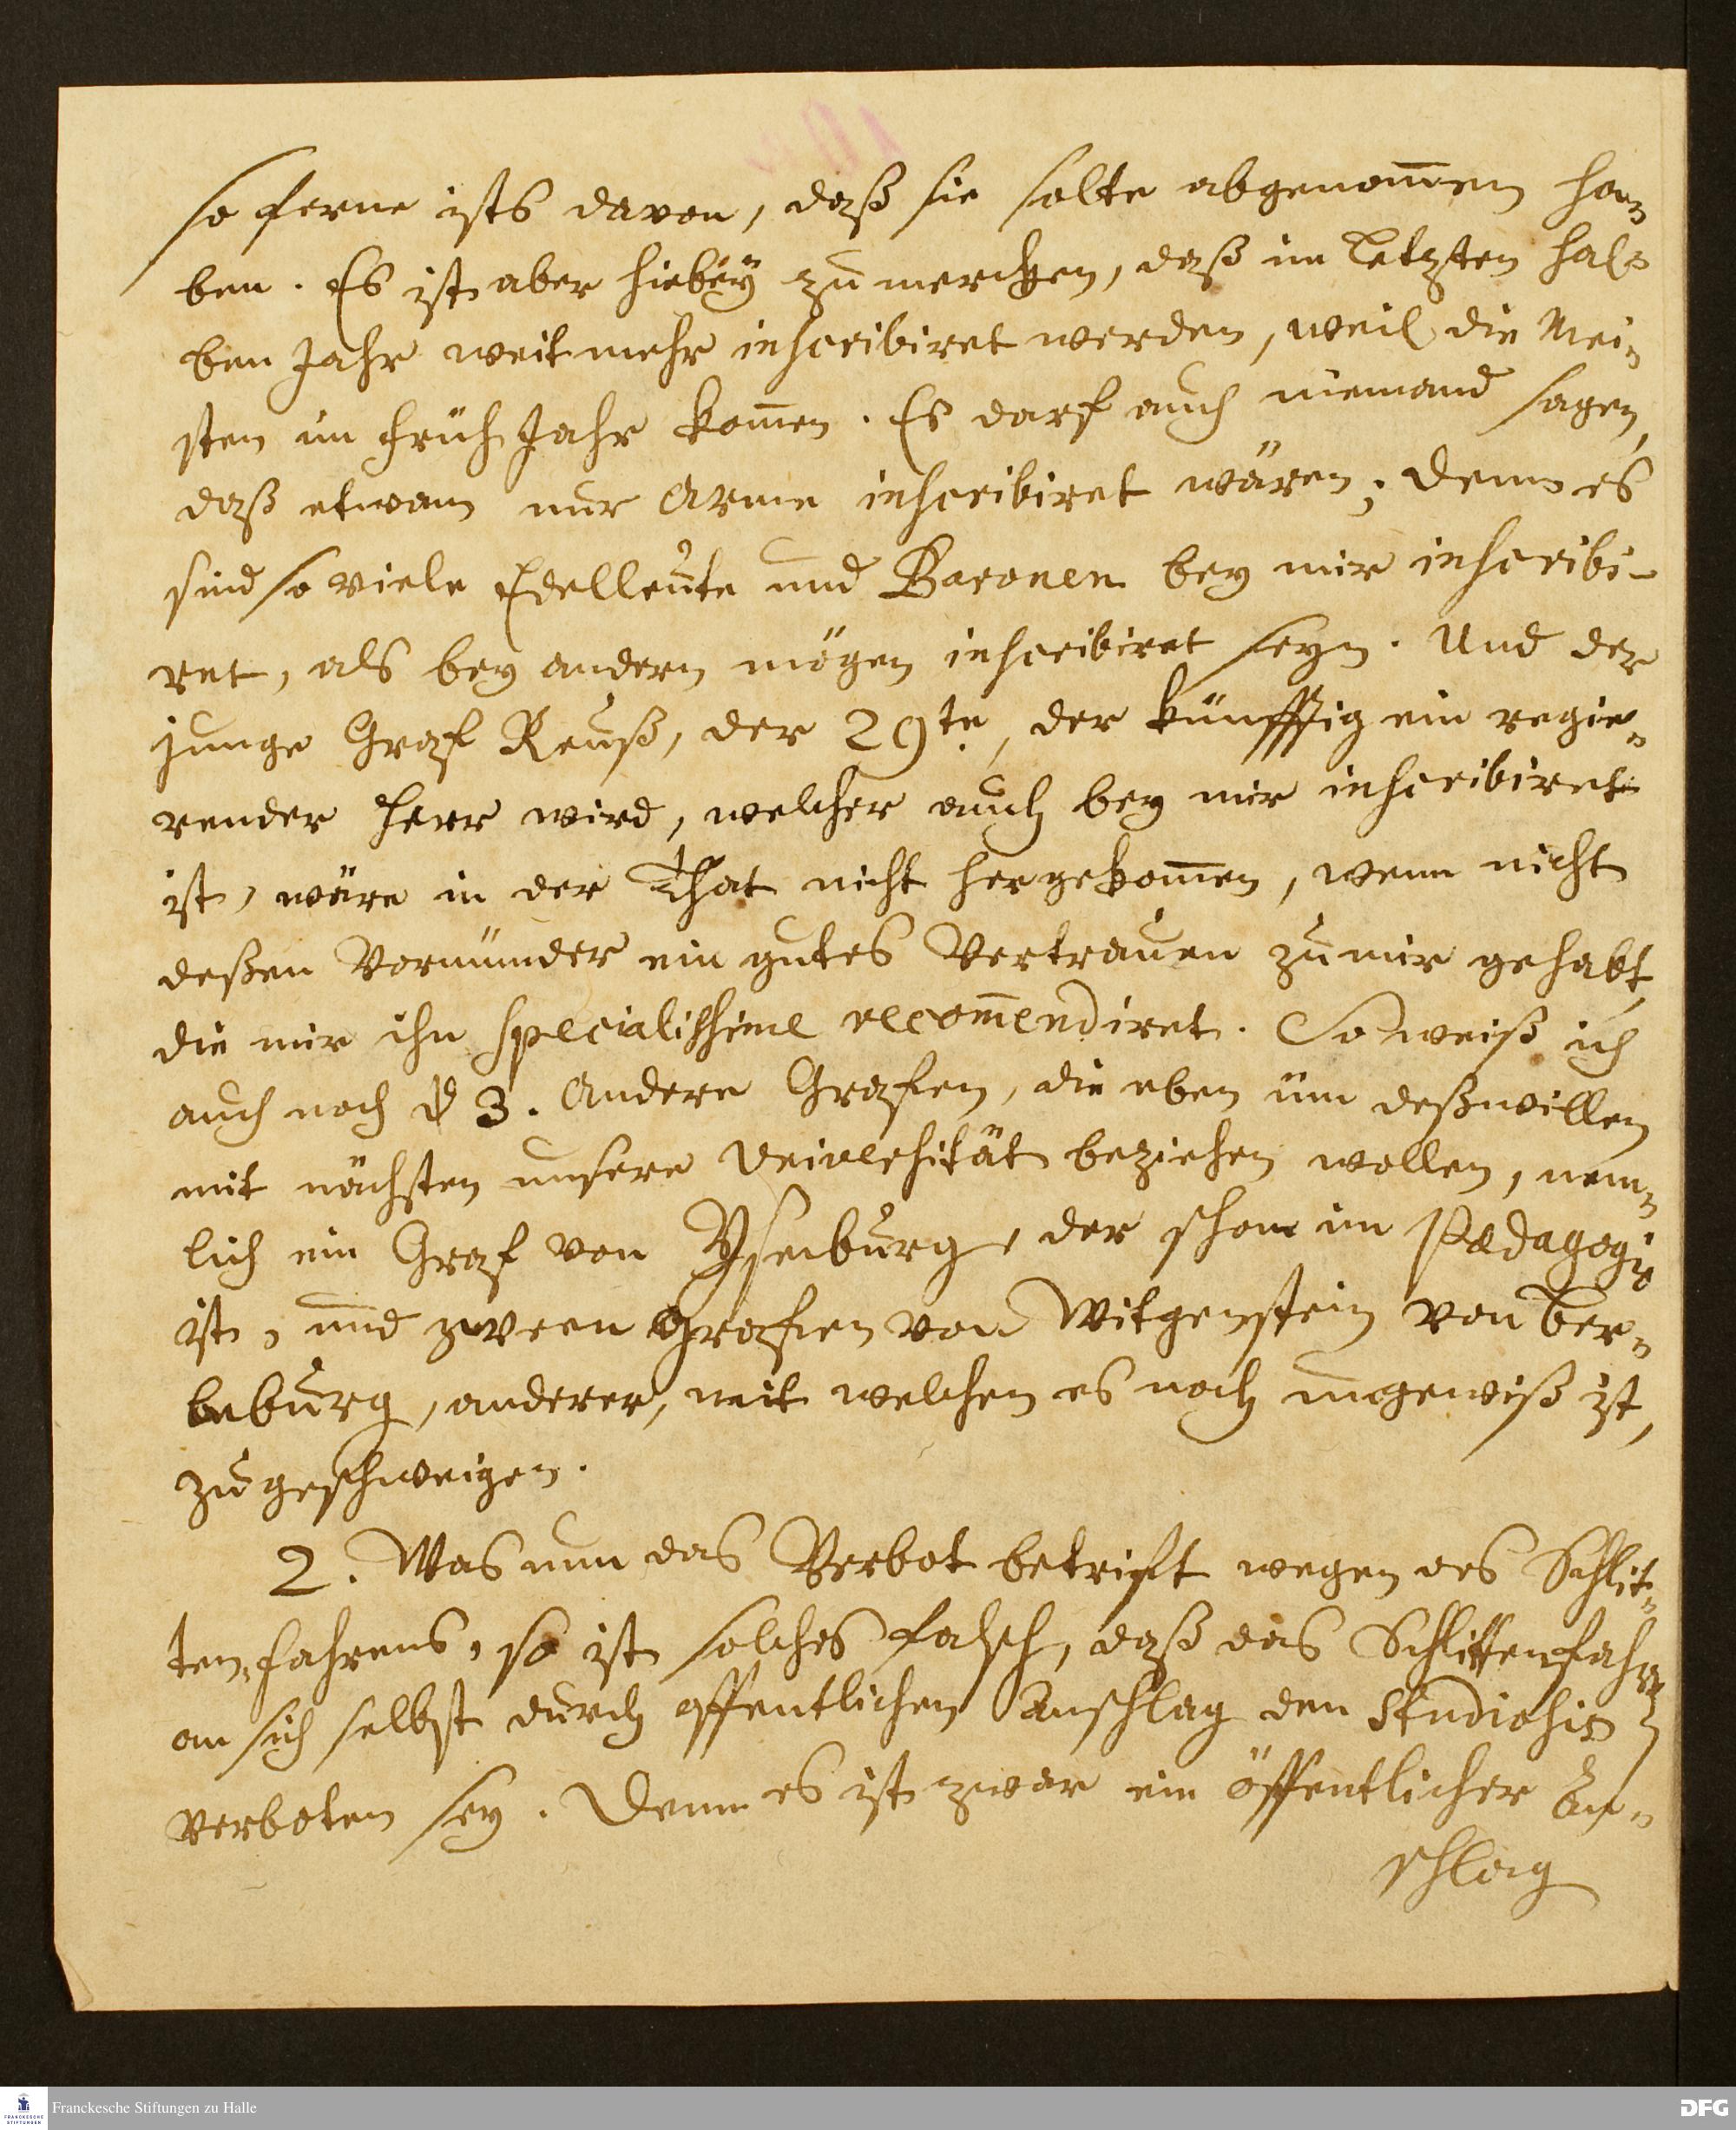 so ferne ists davon, daß sie solte abgenom̅en ha-
ben. Es ist aber hiebey zu mercken, daß im letzten hal-
ben Jahr weit mehr inscribiret werden, weil die Mei-
sten im Früh Jahr kom̅en. Es darf auch niemand sagen,
daß etwann nur Arme inscribiret wären; denn es
sind so viele Edelleute und Baronen bey mir inscribi-
ret, als bey andern mögen inscribiret seyn. Und der
junge Graf Reuß, der 29te, der künfftig ein regie-
render Herr wird, welcher auch bey mir inscribiret
ist, wäre in der That nicht hergekom̅en, wenn nicht
deßen Vormünder ein gutes Vertrauen zu mir gehabt,
die mir ihn specialissime recom̅endiret. So weiß ich
auch noch 3. Andere Grafen, die eben üm deßwillen
mit nächsten unsere Universität beziehen wollen, nem-
lich ein Graf von Ysenburg, der schon im Pædagogio
ist, und zween Grafen von Witgenstein von Ber-
beburg, anderer, mit welchen es noch ungewiß ist,
zugeschweigen.
2. Was nun das Verbot betrift wegen des Schlit-
ten-fahrens, so ist solches falsch, daß das Schlittenfahren
an sich selbst durch offentlichen Anschlag den Studiosis
verboten sey. Denn es ist zwar ein öffentlicher An-
schlag
Franckesche Stiftungen zu Halle
FRANCKESCHE STIFTUNGEN
DFG